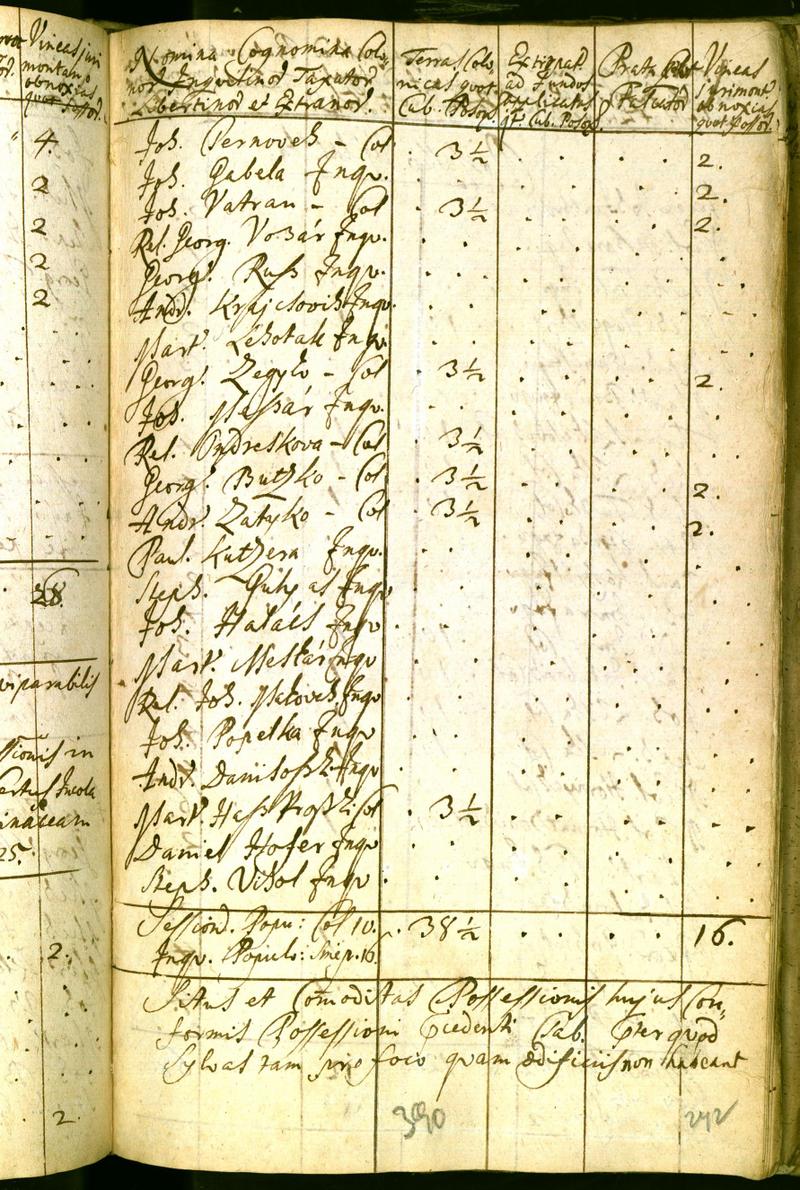 Vineas juri
montano
obnoxias
quot Fossor.
4.
2
2
2
2
28.
viparabilis
ssionis in
Incola
25.
2.
2
Nomina Cognomina Colo-
nor. Inqvilinor. Taxator.
Libertinor et Extraneor.
Terras Colo-
nicas quot
Cub. Poson.
Extirpat.
ad Fundos
applicatas
qt. Cub. Poson.
Prata quot
Falcator
Vineas
juri mont.
obnoxias
quot fossor.
Joh. Pernovch - Col 3½ 2.
Joh. Gabela Inqv. 2.
Joh. Vatran - Col 3½ 2.
Rel. Georg. Vozár Inqv.
Georg. Russ Inqv.
Andr. Krajcsovich Inqv.
Mart. Lehotak Inqv
Georg. Zegylo - Col 3½ 2.
Joh. Massár Inqv.
Rel. Ondreskova - Col 3½
Georg. Butzko - Col 3½ 2.
Andr. Zatyko - Col 3½ 2.
Paul. Kutzera Inqv.
Steph. Inqv
Joh. Halács Inqv
Mart. Mestár Inqv
Rel. Joh. Makovch Inqv
Joh. Popelka Inqv
Andr. Inqv
Mart. Col 3½
Daniel Hofer Inqv
Steph. Vitol Inqv
Session. Popu: Col 10. 38½ 16.
Inqv. Populo: 16.
Situs et Comoditas Possessionis hujus Con-
formis Possessioni Pcedenti Cab. Pterqvod
Sylvas tam pro foco quam ædificiis non habeant
390 292